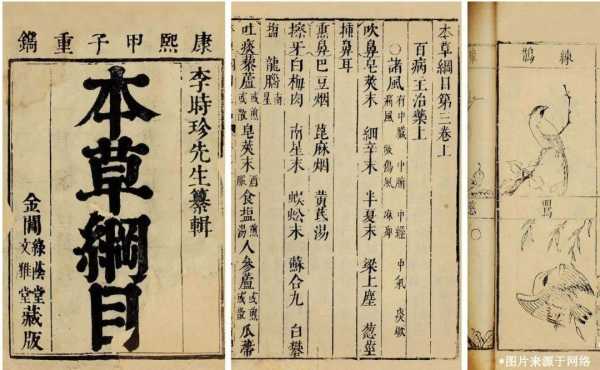 康熙甲子重鐫
李時珍先生纂輯
本草綱目
金閶
綠蔭堂
文雅堂
藏版
本草綱目第三卷上
百病主治藥上
○諸風 有中臟 中腑 中經 中氣 痰厥
痛風 破傷風 麻痺
吹鼻皂莢末 細辛末 半夏末 梁上塵 葱莖
插鼻耳
熏鼻巴豆烟 蓖麻烟 黃芪湯
擦牙白梅肉 南星末 蜈蚣末 蘇合丸 白礬
鹽 龍腦南星
吐痰藜蘆或煎或散 皂莢末酒服 食塩煎湯 人參蘆或煎或散 瓜蒂
練鵲
*图片来源于网络